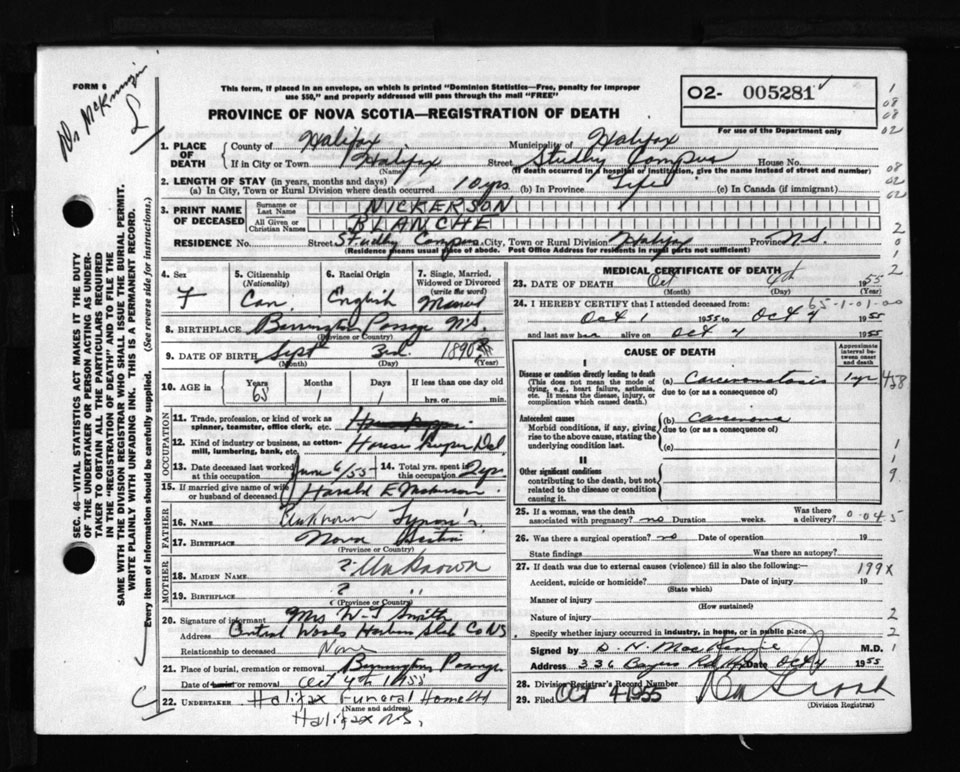 FORM 6
Dr McKenzie
This form, if placed in an envelope, on which is printed "Dominion Statistics—Free, penalty for improper
use $50," and properly addressed will pass through the mail "FREE"
PROVINCE OF NOVA SCOTIA—REGISTRATION OF DEATH
O2- 005281
For use of the Department only
SEC. 46—VITAL STATISTICS ACT MAKES IT THE DUTY
OF THE UNDERTAKER OR PERSON ACTING AS UNDER-
TAKER TO OBTAIN ALL THE PARTICULARS REQUIRED
IN THE "REGISTRATION OF DEATH" AND TO FILE THE
SAME WITH THE DIVISION REGISTRAR WHO SHALL ISSUE THE BURIAL PERMIT.
WRITE PLAINLY WITH UNFADING INK. THIS IS A PERMANENT RECORD.
Every item of information should be carefully supplied. (See reverse side for instructions.)
1. PLACE OF DEATH County of Halifax Municipality of Halifax
If in City or Town Halifax Street Studley Campus House No.
(Name) (If death occurred in a hospital or institution, give the name instead of street and number)
2. LENGTH OF STAY (in years, months and days)
(a) In City, Town or Rural Division where death occurred 10 yrs (b) In Province Life (c) In Canada (if immigrant)
3. PRINT NAME OF DECEASED Surname or Last Name NICKERSON
All Given or Christian Names BLANCHE
RESIDENCE No. Street Studley Campus City, Town or Rural Division Halifax Province N.S.
(Residence means usual place of abode. Post Office Address for residents in rural parts not sufficient)
4. Sex F
5. Citizenship (Nationality) Can.
6. Racial Origin English
7. Single, Married, Widowed or Divorced (write the word) Married
8. BIRTHPLACE Barrington Passage N.S.
(Province or Country)
9. DATE OF BIRTH Sept 3rd 1890
(Month) (Day) (Year)
10. AGE in Years 65 Months 1 Days 1 If less than one day old
hrs. or min.
OCCUPATION
11. Trade, profession, or kind of work as
spinner, teamster, office clerk, etc.
12. Kind of industry or business, as cotton-
mill, lumbering, bank, etc. House keeper Dal
13. Date deceased last worked at this occupation June 6/55 14. Total yrs. spent in this occupation 2 yrs
15. If married give name of wife or husband of deceased Harold E
FATHER
16. NAME Unknown
17. BIRTHPLACE Nova Scotia
(Province or Country)
MOTHER
18. MAIDEN NAME ? Unknown
19. BIRTHPLACE ? "
(Province or Country)
20. Signature of informant Mrs W-J Smith
Address Central Woods Harbour Shelb Co NS
Relationship to deceased None
21. Place of burial, cremation or removal Barrington Passage
Date of burial or removal Oct 4th 1955
22. UNDERTAKER Halifax Funeral Home Ltd
(Name and address)
Halifax N.S.
MEDICAL CERTIFICATE OF DEATH
23. DATE OF DEATH Oct 4th 1955
(Month) (Day) (Year)
24. I HEREBY CERTIFY that I attended deceased from: 65-1-01-00
Oct 1 1955 to Oct 4 1955
and last saw her alive on Oct 4 1955
CAUSE OF DEATH
Approximate interval between onset and death
I
Disease or condition directly leading to death (a) Carcinomatosis 1 yr
(This does not mean the mode of dying, e.g., heart failure, asthenia, etc. It means the disease, injury, or complication which caused death.) due to (or as a consequence of)
Antecedent causes (b) Carcinoma
Morbid conditions, if any, giving rise to the above cause, stating the underlying condition last. due to (or as a consequence of)
(c)
II
Other significant conditions
contributing to the death, but not related to the disease or condition causing it.
25. If a woman, was the death associated with pregnancy? no Duration weeks. Was there a delivery? 0-045
26. Was there a surgical operation? no Date of operation 19
State findings Was there an autopsy?
27. If death was due to external causes (violence) fill in also the following: 199X
Accident, suicide or homicide? Date of injury 19
(State which)
Manner of injury
(How sustained)
Nature of injury
Specify whether injury occurred in industry, in home, or in public place
Signed by D. N. MacKenzie M.D.
Address 336 Bayers Rd Hfx Date Oct 4 1955
28. Division Registrar's Record Number
29. Filed Oct 4 1955
(Division Registrar)